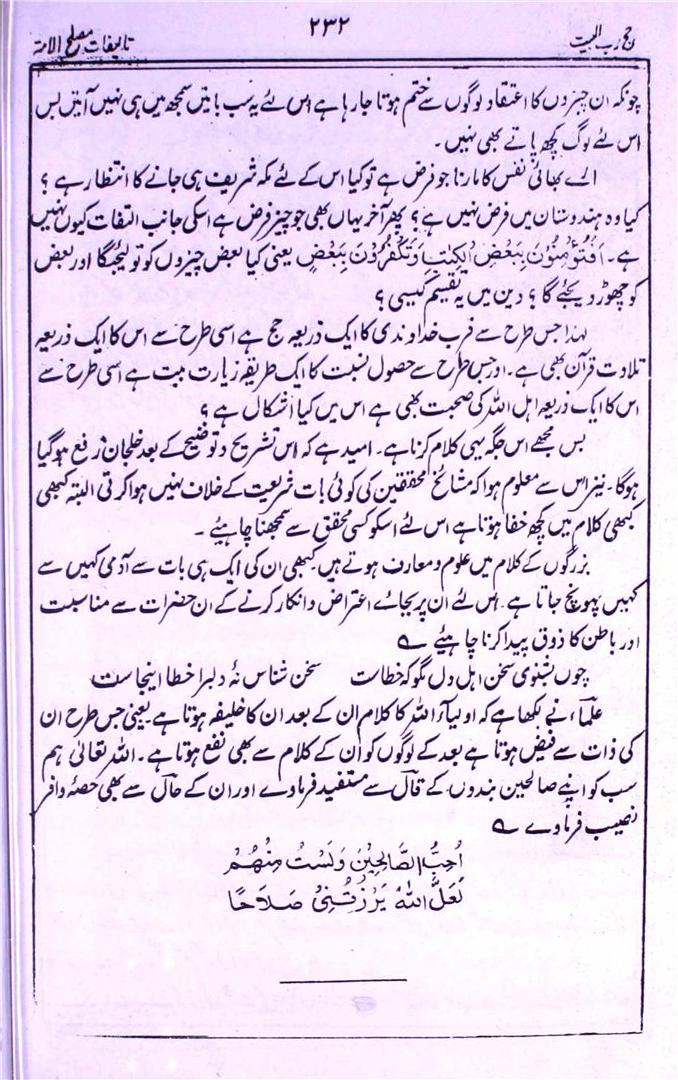 حج رب البیت
۲۳۲
تالیفات مصلح الامۃ
چونکہ ان چیزوں کا اعتقاد لوگوں سے ختم ہوتا جا رہا ہے اس لئے یہ سب باتیں سمجھ میں ہی نہیں آتیں بس
اس لئے لوگ کچھ پاتے بھی نہیں۔
الے بھائی نفس کا مارنا جو فرض ہے تو کیا اس کے لئے مکہ شریف ہی جانے کا انتظار ہے ؟
کیا وہ ہندوستان میں فرض نہیں ہے ؟ پھر آخر یہاں بھی جو چیز فرض ہے اسکی جانب التفات کیوں نہیں
ہے۔ اَفَتُؤْمِنُوْنَ بِبَعْضِ الْكِتٰبِ وَتَكْفُرُوْنَ بِبَعْضٍ یعنی کیا بعض چیزوں کو تو لیجئیگا اور بعض
کو چھوڑ دیجئے گا ؟ دین میں یہ تقسیم کیسی ؟
لہذا جس طرح سے قرب خداوندی کا ایک ذریعہ حج ہے اسی طرح سے اس کا ایک ذریعہ
تلاوت قرآن بھی ہے۔ اور جس طرح سے حصول نسبت کا ایک طریقہ زیارت بیت ہے اسی طرح سے
اس کا ایک ذریعہ اہل اللہ کی صحبت بھی ہے اس میں کیا اشکال ہے ؟
بس مجھے اس جگہ یہی کلام کرنا ہے۔ امید ہے کہ اس تشریح و توضیح کے بعد خلجان رفع ہو گیا
ہوگا۔ نیز اس سے معلوم ہوا کہ مشائخ محققین کی کوئی بات شریعت کے خلاف نہیں ہوا کرتی البتہ کبھی
کبھی کلام میں کچھ خفا ہوتا ہے اس لئے اسکو کسی محقق سے سمجھنا چاہیئے ۔
بزرگوں کے کلام میں علوم و معارف ہوتے ہیں کبھی ان کی ایک ہی بات سے آدمی کہیں سے
کہیں پہونچ جاتا ہے۔ اس لئے ان پر بجائے اعتراض و انکار کرنے کے ان حضرات سے مناسبت
اور باطن کا ذوق پیدا کرنا چاہیئے ؎
چوں بشنوی سخن اہل دل مگو کہ خطاست سخن شناس نۂ دلبرا خطا اینجاست
علماء نے لکھا ہے کہ اولیاء اللہ کا کلام ان کے بعد ان کا خلیفہ ہوتا ہے یعنی جس طرح ان
کی ذات سے فیض ہوتا ہے بعد کے لوگوں کو ان کے کلام سے بھی نفع ہوتا ہے۔ اللہ تعالیٰ ہم
سب کو اپنے صالحین بندوں کے قال سے مستفید فرمادے اور ان کے حال سے بھی حصۂ وافر
نصیب فرمادے ؎
اُحِبُّ الصَّالِحِيْنَ وَلَسْتُ مِنْهُمْ
لَعَلَّ اللّٰهَ يَرْزُقُنِيْ صَلَاحًا